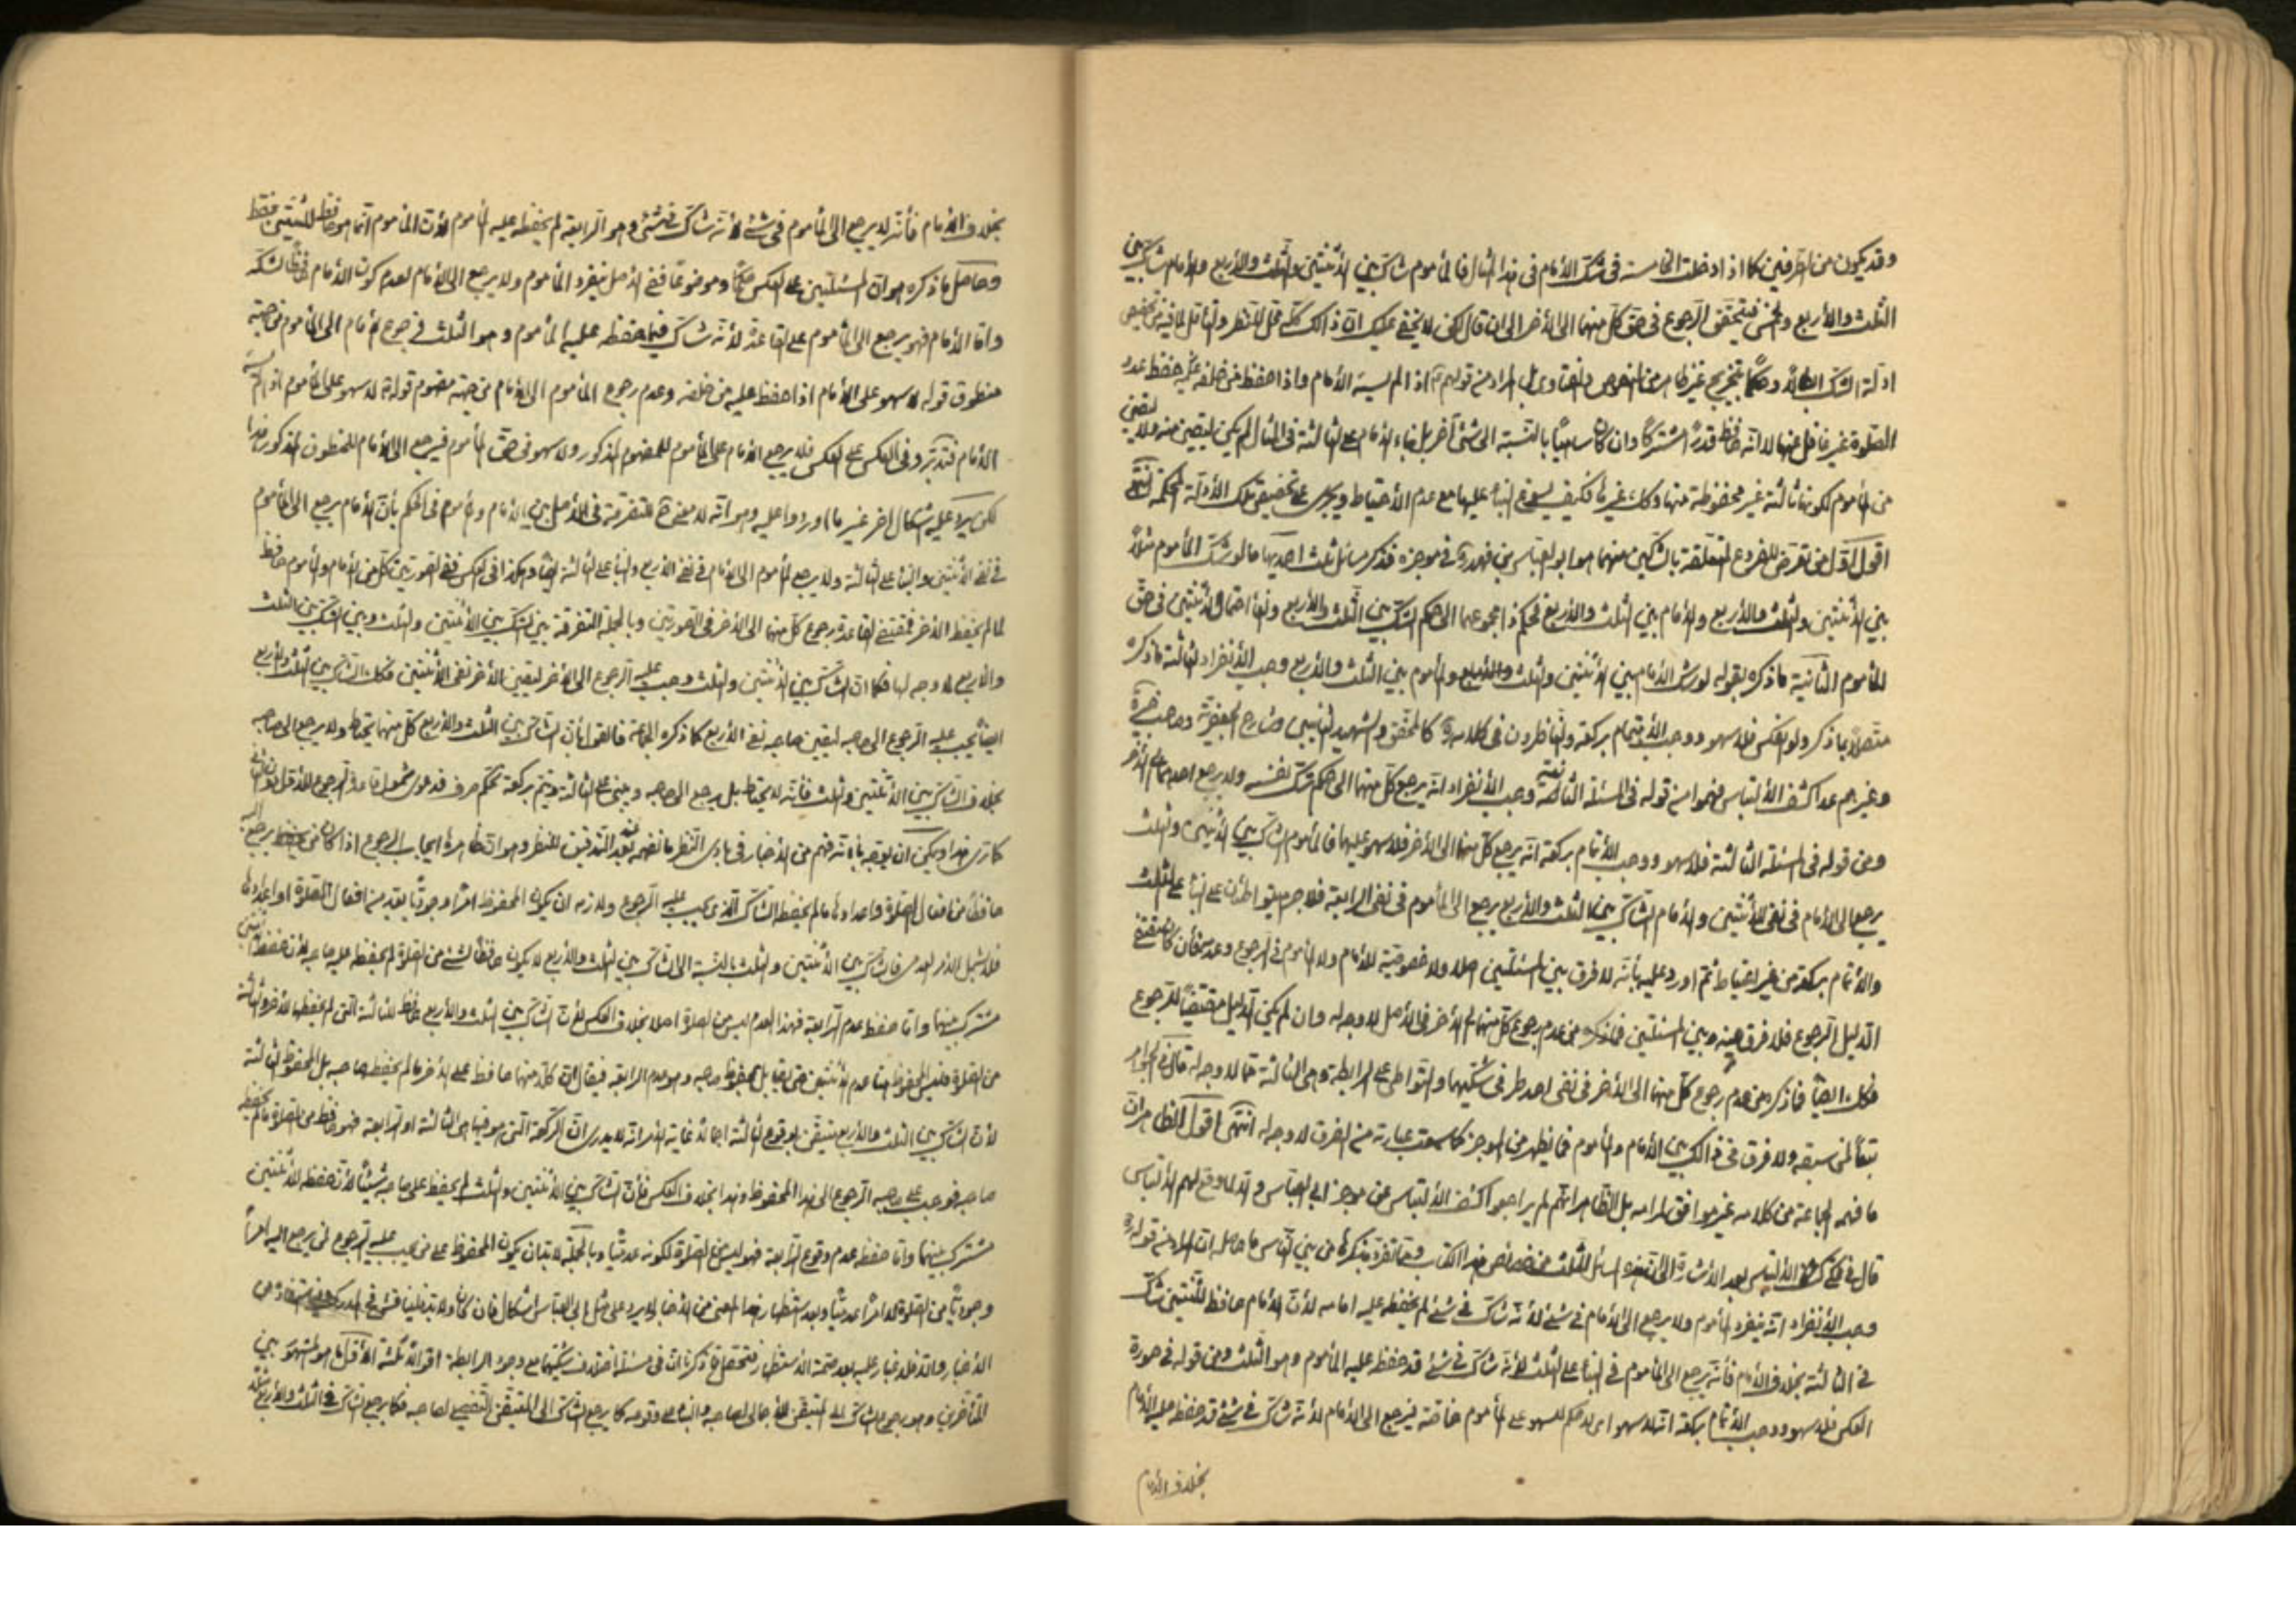 وقد يكون من الطرفين كما اذا دخلت الخامسة فى شك الأمام فى هذا المثال فالمأموم شاك بين الأثنتين والثلث والأربع والأمام شاك بين
الثلث والأربع والخمس فيتحقق الرجوع فى حق كل منهما الى الأخر الى ان قال لكن لا يخفى عليك ان ذالك كله محل للنظر والتأمل لما فيه من تخصيص
ادلة الشك وحكما بتخريج غير ظاهر من النصوص والفتاوى بل المراد من قولهم اذا لم يسه الأمام واذا حفظ من خلفه عليه حفظ عدد
الصلوة غير غافل عنها لا انه حافظ قدرا مشتركا وان كان ساهيا بالنسبة الى شئ آخر بل بناء الأمام على الثالثة فى المثال لم يكن ليقين منه ولا يقين
من المأموم لكونها ثالثة غير محفوظة منها وكك غيرها فكيف يسوغ البناء عليها مع عدم الأحتياط ويجرى على تخصيص تلك الأدلة المحكمة انتهى
اقول اول من تعرض للفروع المتعلقة بالشكين منهما هو ابو العباس بن فهد ره فى موجزه فذكر مسائل ثلث احديها ما لو شك المأموم مثلا
بين الأثنتين والثلث والأربع والأمام بين الثلث والأربع فحكم فى مجموعهما الى حكم الشك بين الثلث والأربع ولغا احتمال الأثنتين فى حق
المأموم الثانية ما ذكره بقوله لو شك الأمام بين الأثنتين والثلث والأربع والمأموم بين الثلث والأربع وجب الأنفراد الثالثة ما ذكره
متصلا بما ذكر ولو انعكس فلا سهو ووجب الأتمام بركعة والناظرون فى كلامه ره كالمحقق والشهيد الثانيين وشارح الجعفرية وصاحب الذخيرة
وغيرهم عدا كشف الألتباس فهموا من قوله فى المسئلة الثانية وجب الأنفراد انه يرجع كل منهما الى حكم شك نفسه ولا يرجع احدهما الى الأخر
ومن قوله فى المسئلة الثالثة فلا سهو ووجب الأتمام بركعة انه يرجع كل منهما الى الأخر فلا سهو عليهما فالمأموم الشاك بين الأثنتين والثلث
يرجع الى الأمام فى نفى الأثنتين والأمام الشاك بين الثلث والأربع يرجع الى المأموم فى نفى الرابعة فلا جرم يتواطئان على البناء على الثلث
والأتمام بركعة من غير احتياط ثم اورد عليه بأنه لا فرق بين المسئلتين اصلا ولا خصوصية للأمام ولا المأموم فى الرجوع وعدمه فأن كان مقتضى
الدليل الرجوع فلا فرق بينه وبين المسئلتين فما ذكره من عدم رجوع كل منهما الى الأخر فى الأصل لا وجه له وان لم يكن الدليل مقتضيا للرجوع
فكك ايضا فما ذكره من عدم رجوع كل منهما الى الأخر فى نفى احد طرفى شكيهما والتواطى على الرابطة وهى الثالثة مما لا وجه له قال فى الجواهر
تبعا لمن سبقه ولا فرق فى ذالك بين الأمام والمأموم فما يظهر من الموجز كما سمعت عبارته من الفرق لا وجه له انتهى اقول الظاهر ان
ما فهمه الجماعة من كلامه غير موافق لمرامه بل الظاهر انهم لم يراجعوا كشف الألتباس عن موجز ابى العباس والا لما وقع لهم الألتباس
قال فى كشف الألتباس بعد الأشارة الى ان هذه المسائل الثلث من خصائص هذا الكتاب ومما تفرد بذكرها من بين الناس ما حاصله ان المراد من قوله ره
وجب الأنفراد انه ينفرد المأموم ولا يرجع الى الأمام فى شئ لأنه شاك فى شئ لم يحفظه عليه امامه لأن الأمام حافظ للثنتين شاك
فى الثالثة بخلاف الأمام فأنه يرجع الى المأموم فى البناء على الثلث لأنه شاك فى شئ قد حفظ عليه المأموم وهو الثلث ومن قوله فى صورة
العكس فلا سهو ووجب الأتمام بركعة انه لا سهو اى لا حكم للسهو على المأموم خاصة فيرجع الى الأمام لأنه شاك فى شئ قد حفظ عليه الأمام
بخلاف الأمام
بخلاف الأمام فأنه لا يرجع الى المأموم فى شئ لأنه شاك فى شئ وهو الرابعة لم يحفظه عليه المأموم لأن المأموم انما هو حافظ للثنتين فقط
وحاصل ما ذكره هو ان المسئلتين على العكس حكما وموضوعا ففى الأصل ينفرد المأموم ولا يرجع الى الأمام لعدم كون الأمام حافظا لشكه
واما الأمام فهو يرجع الى المأموم على القاعدة لأنه شاك فيما حفظه عليه المأموم وهو الثلث فرجوع الأمام الى المأموم من جهة
منطوق قوله لا سهو على الأمام اذا حفظ عليه من خلفه وعدم رجوع المأموم الى الأمام من جهة مفهوم قوله لا سهو على المأموم اذا لم يسه
الأمام فتدبر وفى العكس على العكس فلا يرجع الأمام على المأموم للمفهوم المذكور ولا سهو فى حق المأموم فيرجع الى الأمام للمنطوق المذكور هذا
لكن يرد عليه اشكال اخر غير ما اوردوا عليه وهو انه لا معنى ح للتفرقة فى الأصل بين الأمام والمأموم فى الحكم بأن الأمام يرجع الى المأموم
فى نفى الأثنتين والبناء على الثالثة ولا يرجع المأموم الى الأمام فى نفى الأربع والبناء على الثالثة ايضا وهكذا فى العكس ففى الصورتين كل من الأمام والمأموم حافظ
لما لم يحفظ الأخر فمقتضى القاعدة رجوع كل منهما الى الأخر فى الصورتين وبالجملة التفرقة بين الشك بين الأثنتين والثلث وبين الشك بين الثلث
والأربع لا وجه لها فكما ان الشاك بين الأثنتين والثلث وجب عليه الرجوع الى الأخر ليقين الأخر نفى الأثنتين فكك الشاك بين الثلث والأربع
ايضا يجب عليه الرجوع الى صاحبه ليقين صاحبه نفى الأربع كما ذكره الجماعة فالقول بأن الشاك بين الثلث والأربع كل منهما يحتاط ولا يرجع الى صاحبه
بخلاف الشاك بين الأثنتين والثلث فأنه لا يحتاط بل يرجع الى صاحبه ويبنى على الثالثة ويتم بركعة تحكم صرف فدعوى شمول قاعدة الرجوع للأول دون الثانى
كما ترى هذا ويمكن ان يوجه بأنه فهم من الأخبار فى بادى النظر ما نفهمه بعد التدقيق للنظر وهو ان ظاهرها ايجاب الرجوع اذا كان من يرجع اليه
حافظا من افعال الصلوة واعدادها ما لم يحفظه الشاك الذى يجب عليه الرجوع ولازمه ان يكون المحفوظ امرا وجوديا يعد من افعال الصلوة او اعدادها
فلا يشمل الأمر العدمى فالشاك بين الأثنتين والثلث بالنسبة الى الشاك بين الثلث والأربع لا يكون حافظا لشئ من الصلوة لم يحفظه عليه صاحبه لأن حفظ الأثنتين
مشترك بينهما واما حفظ عدم الرابعة فهذا العدم ليس من الصلوة اصلا بخلاف العكس لأن الشاك بين الثلث والأربع حافظ للثالثة التى لم يحفظها الأخر والثالثة
من الصلوة فليس المحفوظ هنا عدم الأثنتين حتى يقابل بمحفوظ صاحبه وهو عدم الرابعة فيقال ان كلا منهما حافظ على الأخر ما لم يحفظه صاحبه بل المحفوظ الثالثة
لأن الشاك بين الثلث والأربع متيقن بوقوع الثالثة اجمالا غاية الأمر انه لا يدرى ان الركعة التى هو فيها هى الثالثة او الرابعة فهو حافظ من الصلوة ما لم يحفظه
صاحبه فوجب على صاحبه الرجوع الى هذا المحفوظ وهذا بخلاف العكس فأن الشاك بين الأثنتين والثلث لم يحفظ على صاحبه شيئا لأن حفظه للأثنتين
مشترك بينهما واما حفظه عدم وقوع الرابعة فهو ليس من الصلوة لكونه عدميا وبالجملة لا بد ان يكون المحفوظ على من يجب عليه الرجوع لمن يرجع اليه امرا
وجوديا من الصلوة لا امرا عدميا وبعد استظهار هذا المعنى من الأخبار لا يرد على مثل ابى العباس اشكال فان كان ولا بد
الأخبار والا فلا غبار عليه بعد صحة الأستظهار فتحصل مما ذكرنا ان فى مسئلة اختلاف شكيهما مع وجود الرابطة اقوالا ثلثة الأول ما هو المشهور بين
المتأخرين وهو رجوع الشاك الى المتيقن الأجمالى لصاحبه والبناء على وقوعه كما يرجع الشاك الى المتيقن التفصيلى لصاحبه فكما يرجع الشاك فى الثلث والأربع مثلا